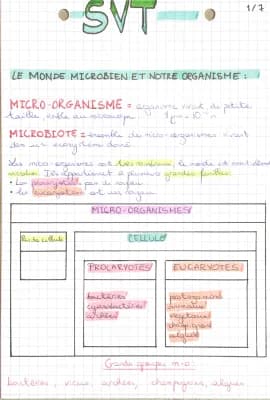 SVT
1/7
LE MONDE MICROBIEN ET NOTRE ORGANISME :
MICRO-ORGANISME = organisme vivant de petite
taille,
MICROBIOTE = ensemble de micro-organismes vivant
dans un écosystème donné
Les micro-organismes sont très nombreux, le monde
Ils appartiennent à plusieurs grandes familles
• Les procaryotes pas de noyau
• Les eucaryotes ont un noyau
MICRO-ORGANISMES
Pas de cellule
CELLULE
PROCARYOTES
EUCARYOTES
bactéries
cyanobactéries
archées
protozoaires
animaux
végétaux
champignons
algues
Grands groupes m-o :
bactéries, virus, archées, champignons, algues